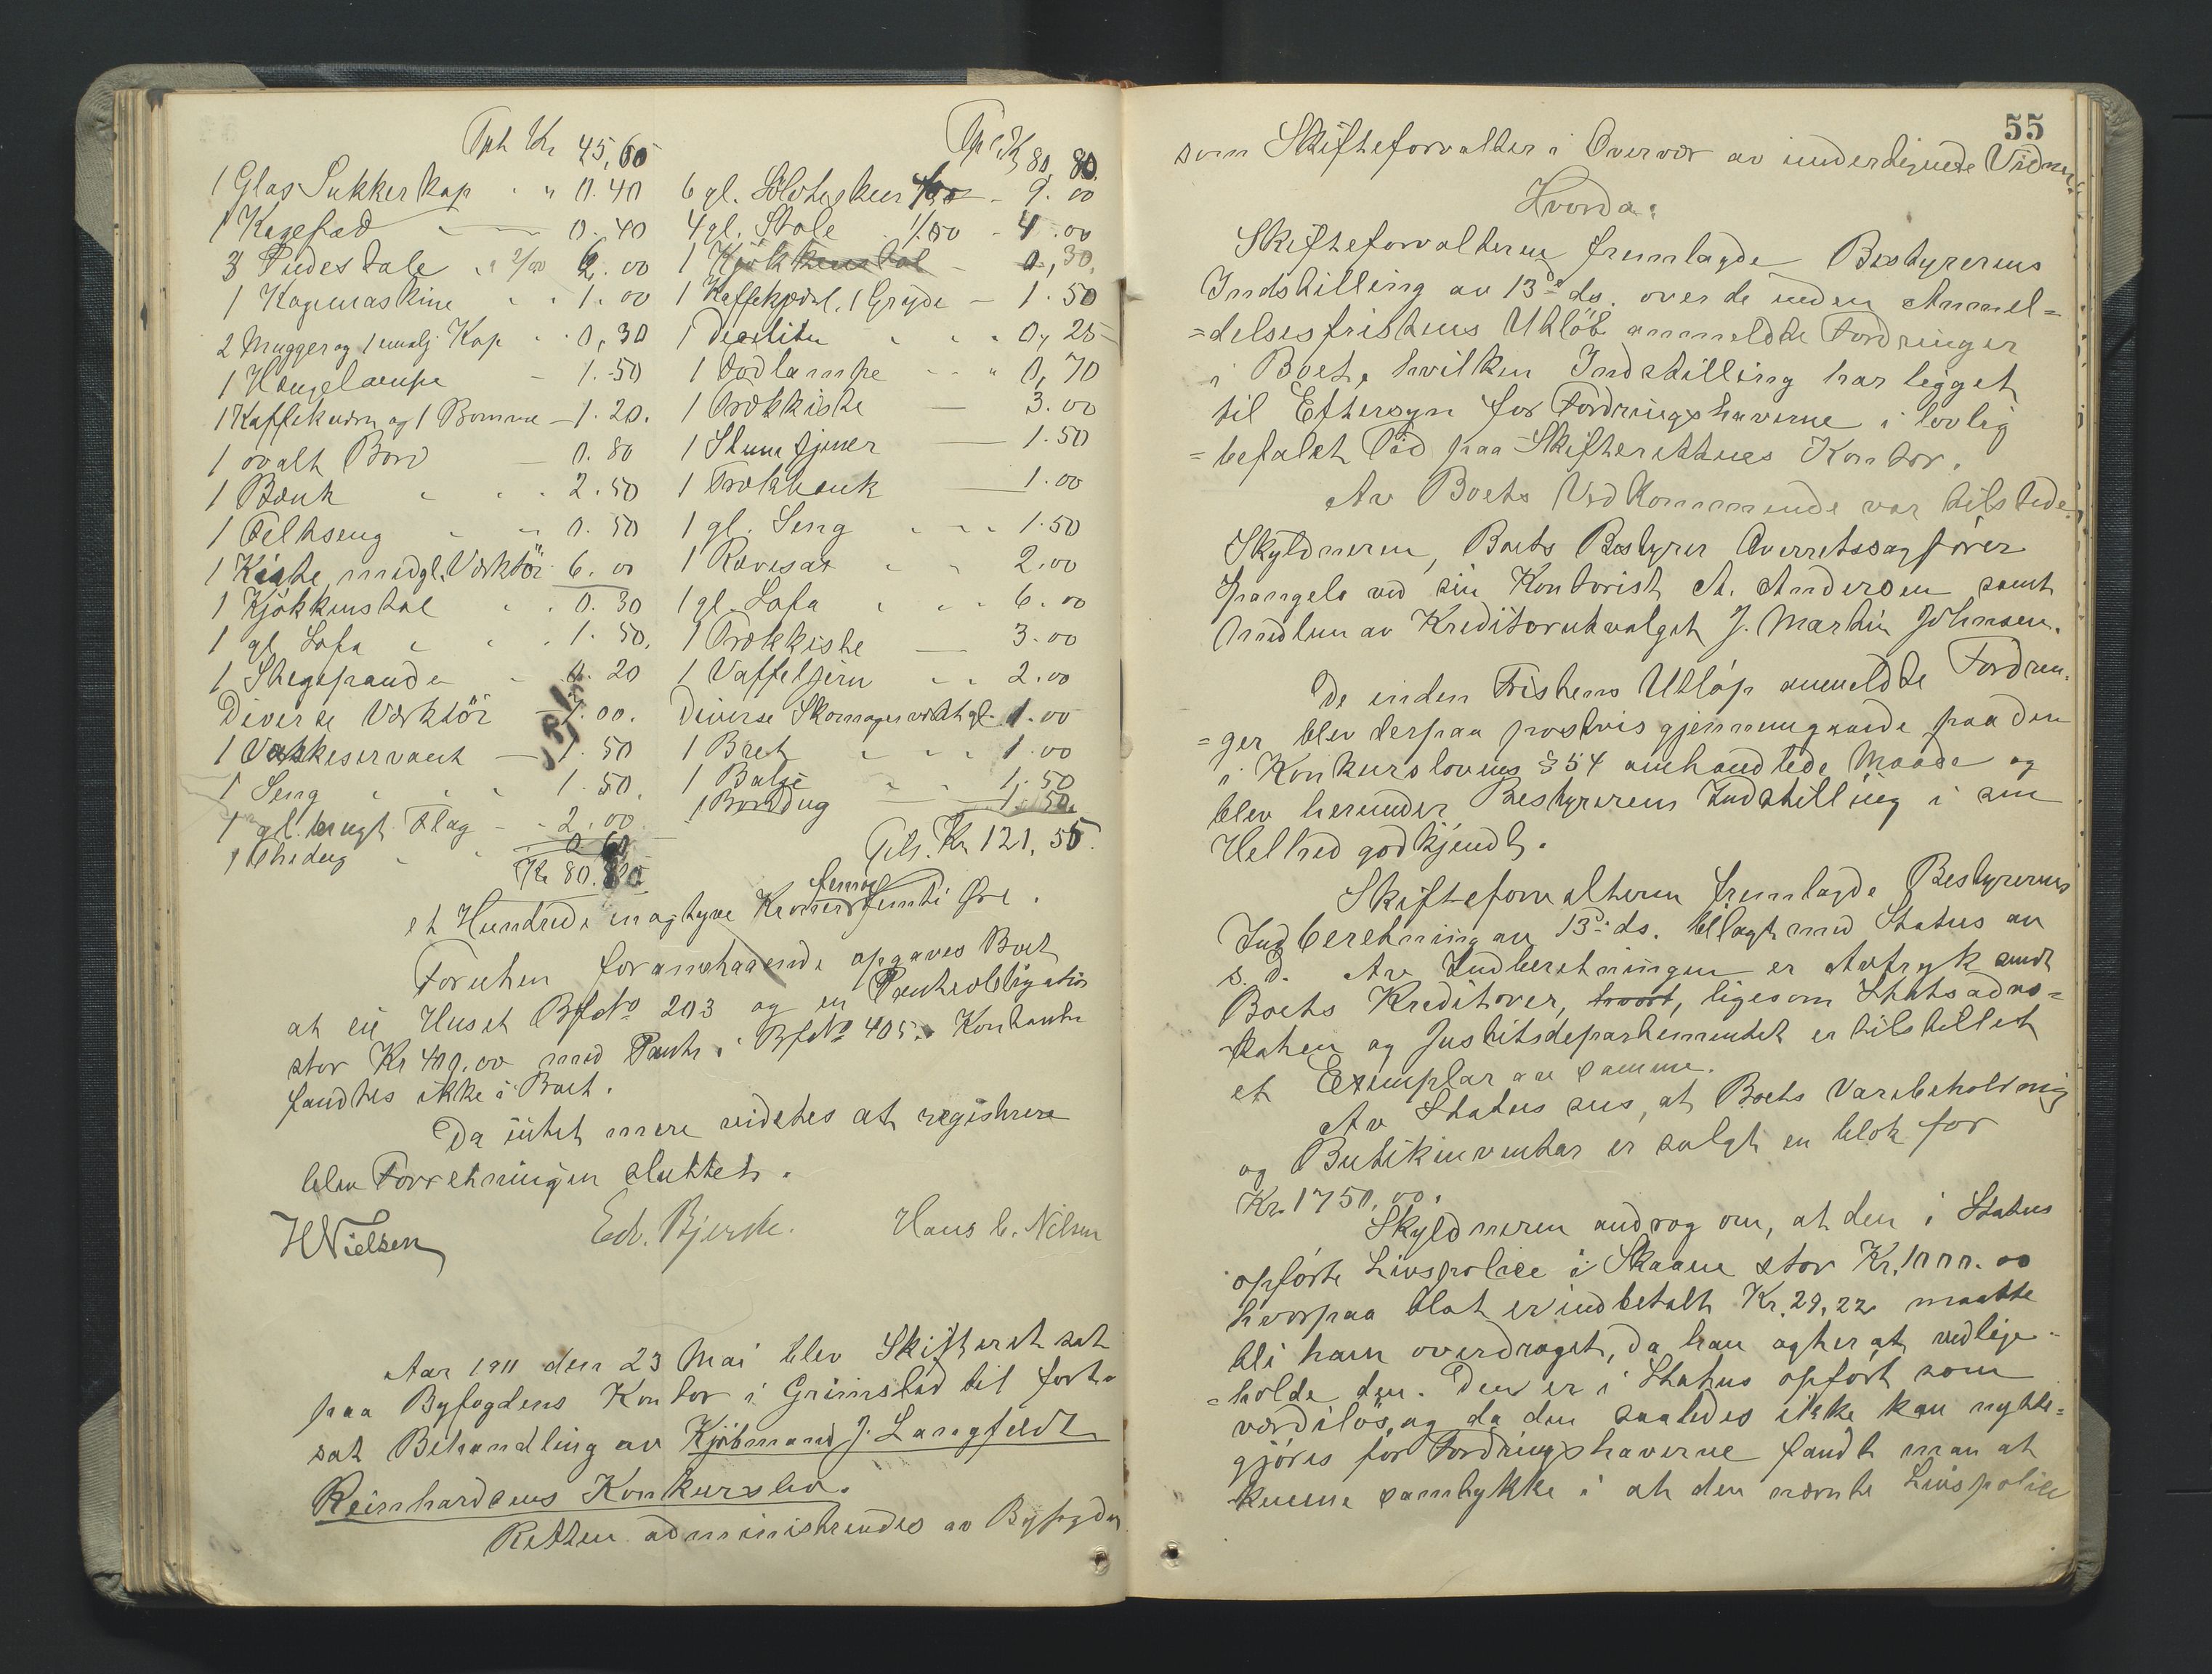 Tpt Kr 45,60
1 Glas Sukkerkop " 0.40
1 Kagefad 0.40
3 Pidestale " 2/00 6.00
1 Kagemaskine 1.00
2 Mugger og 1 emalj Kop 0,30
1 Hængelampe 1.50
1 Kaffekværn og 1 Bomme 1.20.
1 ovalt Bord 0.80
1 Bænk 2.50
1 Feltseng 0.50
1 Kiste med gl. Værktöi 6.00
1 Kjøkkenstol 0.30
1 gl Sofa 1.50.
1 Stegepande 0.20
Diverse Værktöi 1.00.
1 Vaskeservant 1.50
1 Seng 1.50.
1 gl. brugt Flag 2.00
1 Thedug 0 60
Kr 80.80
Tpt Kr 80,80.
6 gl. Sölvteskeer 9.00
4 gl. Stole 1/00 4.00
1 Kjökkenstol 0,30.
1 Kaffekjedel, 1 Gryde 1.50
1 Decilitr 0,25
1 Jodlampe 0,70
1 Trækkiste 3.00
1 Stumtjener 1.50
1 Trækbænk 1.00
1 gl. Seng 1.50
1 Revesax 2.00
1 gl. Sofa 6.00
1 Trækkiste 3.00
1 Vaffeljern 2.00
Diverse Skomagerværktgl 1.00
1 Bret 1.00
1 Balje 1.50
1 Borddug 1.50.
Tils. Kr 121,55.
femog
et Hundrede en og tyve Kroner femti Øre.
Foruten foranstaaende opgaves Boet
at eie Huset Bf No 203 og en Panteobligation
stor Kr 400.00 med Pant i Bf No 405. Kontanter
fandtes ikke i Boet.
Da intet mere vidstes at registrere
blev Forretningen sluttet.
HNielsen Edv. Bjerke. Hans C. Nilsen
Aar 1911 den 23 Mai blev Skifteret sat
paa Byfogdens Kontor i Grimstad til fort-
sat Behandling av Kjøbmand J. Langfeldt
Reinhardsens Konkursbo.
Retten administreredes av Byfogden
55
som Skifteforvalter i Overvær av undertegnede Vidner.
Hvorda:
Skifteforvalteren fremlagde Bestyrerens
Indstilling av 13de ds. over de inden Anmel=
=delsesfristens Utløb anmeldte Fordringer
i Boet, hvilken Indstilling har ligget
til Eftersyn for Fordringshaverne i lovlig
=befalet Tid paa Skifterettens Kontor.
Av Boets Vedkommende var tilstede
Skyldneren, Boets Bestyrer Overretssagfører
Spangelo ved sin Kontorist A. Andersen samt
Medlem av Kreditorutvalget J. Martin Johnsen.
De inden Fristens Utløp anmeldte Fordrin-
=ger blev derpaa postvis gjennemgaaede paa den
i Konkurslovens § 54 omhandlede Maade og
blev herunder Bestyrerens Indstilling i sin
Helhed godkjendt.
Skifteforvalteren fremlagde Bestyrerens
Indberetning av 13de ds. bilagt med Status av
s. d. Av Indberetningen er Avtryk sendt
Boets Kreditorer, hvort, ligesom Statsadvo=
katen og Justitsdepartementet er tilstillet
et Exemplar av samme.
Av Status sees, at Boets Varebeholdning
og Butikinventar er solgt en blok for
Kr. 1750,00.
Skyldneren androg om, at den i Status
opførte Livspolice i Skaane stor Kr. 1000.00
hvorpaa blot er indbetalt Kr. 29,22 maatte
bli ham overdraget, da han agter at vedlige-
=holde den. Den er i Status opført som
værdiløs, og da den saaledes ikke kan nytte=
gjøres for Fordringshaverne fandt man at
kunne samtykke i at den nævnte Livspolice